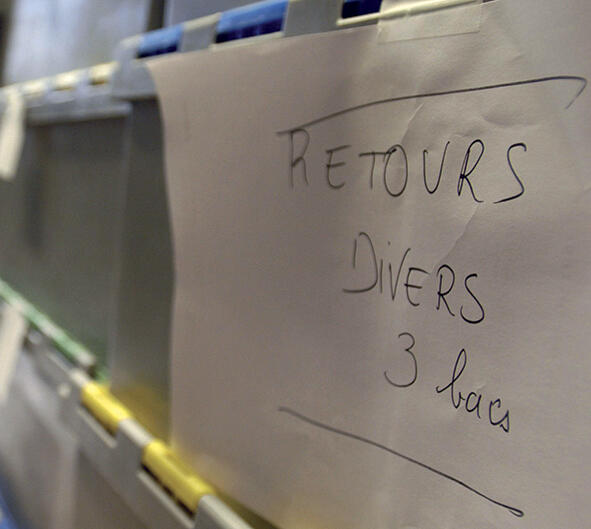 RETOURS
DiVERS
3 bacs